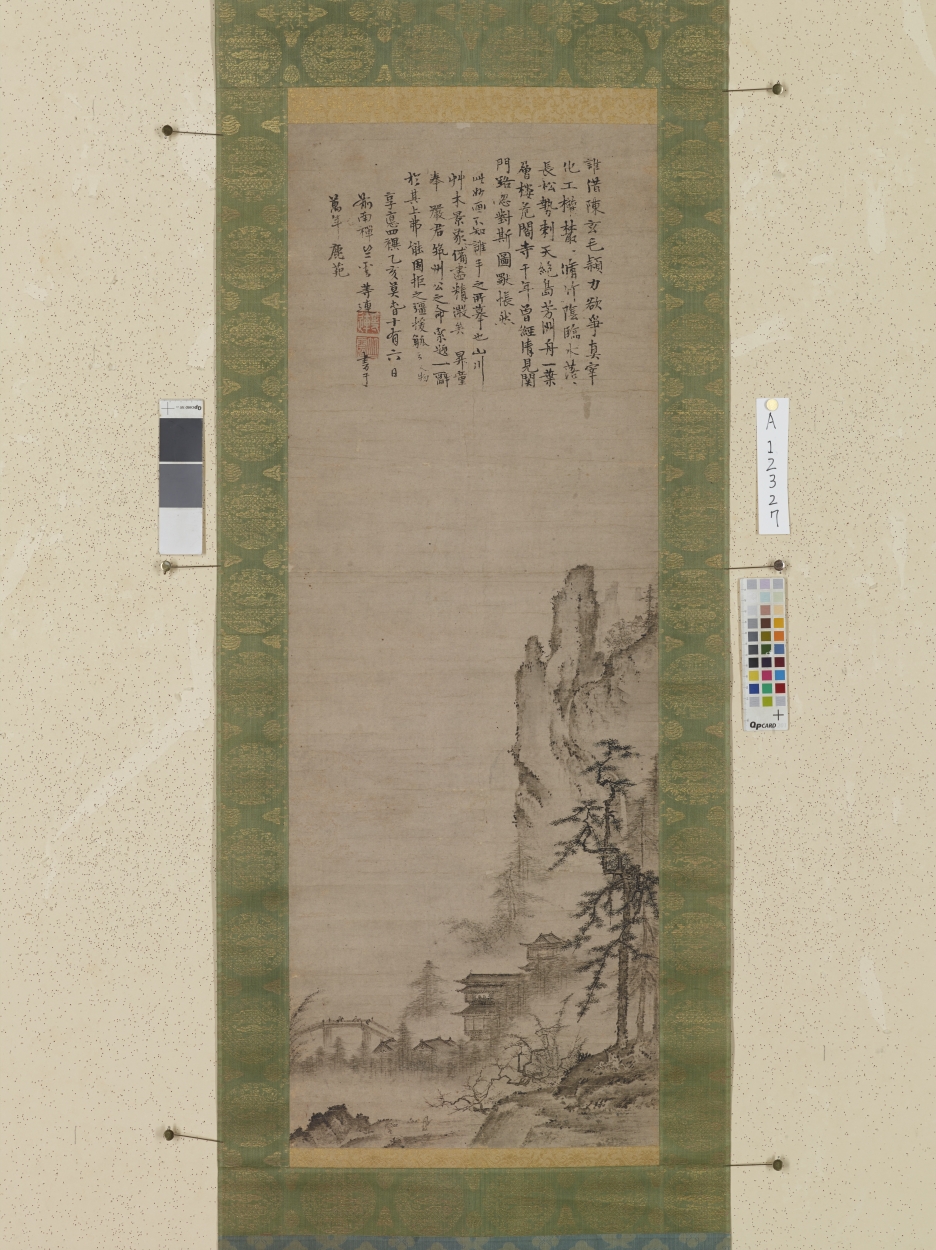 誰借陳玄毛穎力欲爭真宰
化工權叢、脩竹蔭臨水落、
長松勢刺天絶島芳洲舟一葉
層樓危閣寺千年曽經清見関
門路忽對斯圖歎悵然
此妙画不知誰手之所摹也山川
艸木景象備盡精微矣 昇堂
奉 嚴君 筑州公之命索題一辭
於其上弗能固拒之漫援
享徳四禩乙亥莫春十有六日
前南禪竺雲等連 書于
萬年 鹿苑
A12327
QpCARD